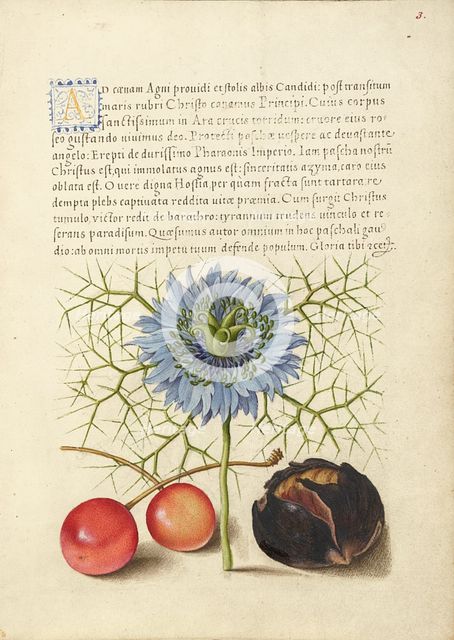 3.
AD cœnam Agni prouidi et stolis albis Candidi: post transitum
maris rubri Christo canamus Principi. Cuius corpus
sanctissimum in Ara crucis torridum: cruore eius ro-
seo gustando uiuimus deo. Protecti paschæ uespere ac deuastante
angelo: Erepti de durissimo Pharaonis Imperio. Iam pascha nostrũ
Christus est, qui immolatus agnus est: sinceritatis azyma, caro eius
oblata est. O uere digna Hostia, per quam fracta sunt tartara, re-
dempta plebs captiuata reddita uitæ præmia. Cum surgit Christus
tumulo, victor redit de barathro: tyrannum trudens uinculo et re-
serans paradisum. Quæsumus autor omnium in hoc paschali gau-
dio: ab omni mortis impetu tuum defende populum. Gloria tibi